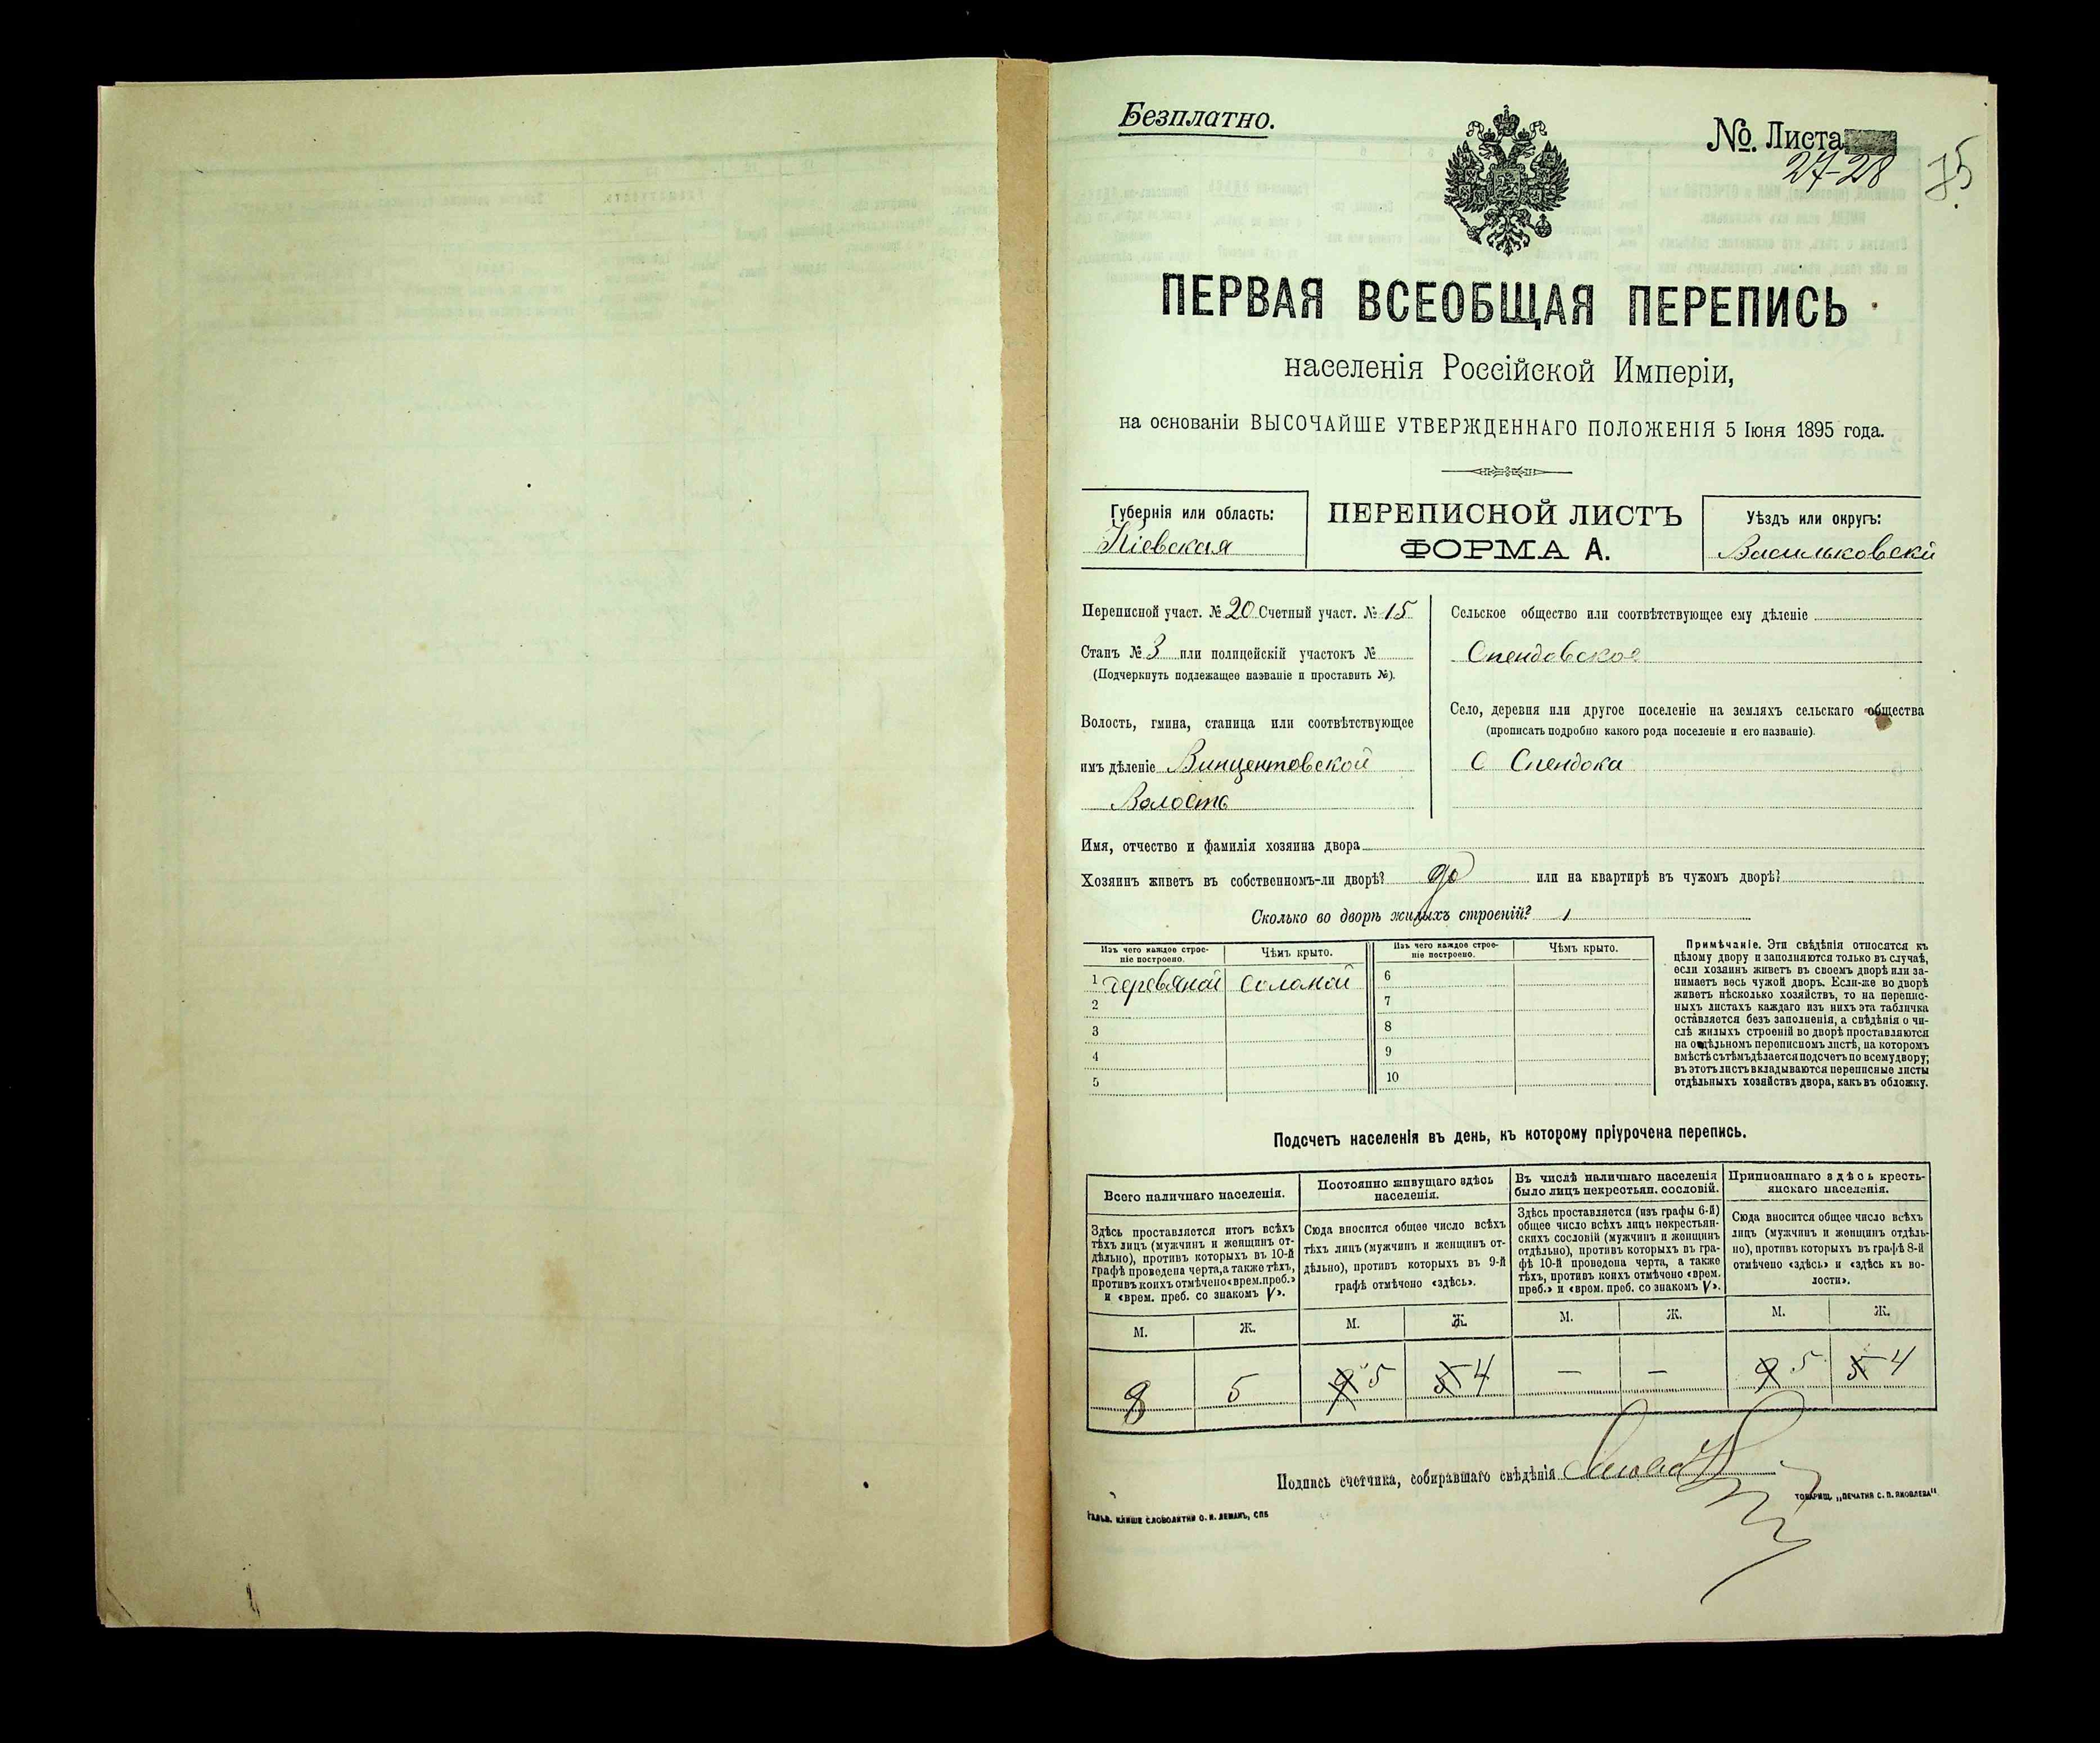 Безплатно.
№. Листа
27-28
75
ПЕРВАЯ ВСЕОБЩАЯ ПЕРЕПИСЬ
населенія Россійской Имперіи,
на основаніи ВЫСОЧАЙШЕ УТВЕРЖДЕННАГО ПОЛОЖЕНІЯ 5 Іюня 1895 года.
Губернія или область:
Кіевская
ПЕРЕПИСНОЙ ЛИСТЪ
ФОРМА А.
Уѣздъ или округъ:
Васильковскій
Переписной участ. № 20 Счетный участ. № 15
Станъ № 3 или полицейскій участокъ №
(Подчеркнуть подлежащее названіе и проставить №).
Волость, гмина, станица или соотвѣтствующее
имъ дѣленіе Винцентовской
Волость
Сельское общество или соотвѣтствующее ему дѣленіе
Спендовское
Село, деревня или другое поселеніе на земляхъ сельскаго общества
(прописать подробно какого рода поселеніе и его названіе).
С Спендока
Имя, отчество и фамилія хозяина двора
Хозяинъ живетъ въ собственномъ-ли дворѣ? до или на квартирѣ въ чужомъ дворѣ?
Сколько во дворѣ жилыхъ строеній? 1
Изъ чего каждое строе-
ніе построено.
Чѣмъ крыто.
Изъ чего каждое строе-
ніе построено.
Чѣмъ крыто.
1 деревяной соломой
2
3
4
5
6
7
8
9
10
Примѣчаніе. Эти свѣдѣнія относятся къ
цѣлому двору и заполняются только въ случаѣ,
если хозяинъ живетъ въ своемъ дворѣ или за-
нимаетъ весь чужой дворъ. Если-же во дворѣ
живетъ нѣсколько хозяйствъ, то на перепис-
ныхъ листахъ каждаго изъ нихъ эта табличка
оставляется безъ заполненія, а свѣдѣнія о чи-
слѣ жилыхъ строеній во дворѣ проставляются
на отдѣльномъ переписномъ листѣ, на которомъ
вмѣстѣ съ тѣмъ дѣлается подсчетъ по всему двору;
въ этотъ листъ вкладываются переписные листы
отдѣльныхъ хозяйствъ двора, какъ въ обложку.
Подсчетъ населенія въ день, къ которому пріурочена перепись.
Всего наличнаго населенія.
Здѣсь проставляется итогъ всѣхъ
тѣхъ лицъ (мужчинъ и женщинъ от-
дѣльно), противъ которыхъ въ 10-й
графѣ проведена черта, а также тѣхъ,
противъ коихъ отмѣчено «врем. преб.»
и «врем. преб. со знакомъ V».
Постоянно живущаго здѣсь
населенія.
Сюда вносится общее число всѣхъ
тѣхъ лицъ (мужчинъ и женщинъ от-
дѣльно), противъ которыхъ въ 9-й
графѣ отмѣчено «здѣсь».
Въ числѣ наличнаго населенія
было лицъ некрестьян. сословій.
Здѣсь проставляется (изъ графы 6-й)
общее число всѣхъ лицъ некрестьян-
скихъ сословій (мужчинъ и женщинъ
отдѣльно), противъ которыхъ въ гра-
фѣ 10-й проведена черта, а также
тѣхъ, противъ коихъ отмѣчено «врем.
преб.» и «врем. преб. со знакомъ V».
Приписаннаго здѣсь кресть-
янскаго населенія.
Сюда вносится общее число всѣхъ
лицъ (мужчинъ и женщинъ отдѣль-
но), противъ которыхъ въ графѣ 8-й
отмѣчено «здѣсь» и «здѣсь къ во-
лости».
М. Ж. М. Ж. М. Ж. М. Ж.
8 5 5 5 4 — — 5 5 4
Подпись счетчика, собиравшаго свѣдѣнія
Гальв. клише словолитни О. И. Леманъ, СПБ
Товарищ. „Печатня С. П. Яковлева“